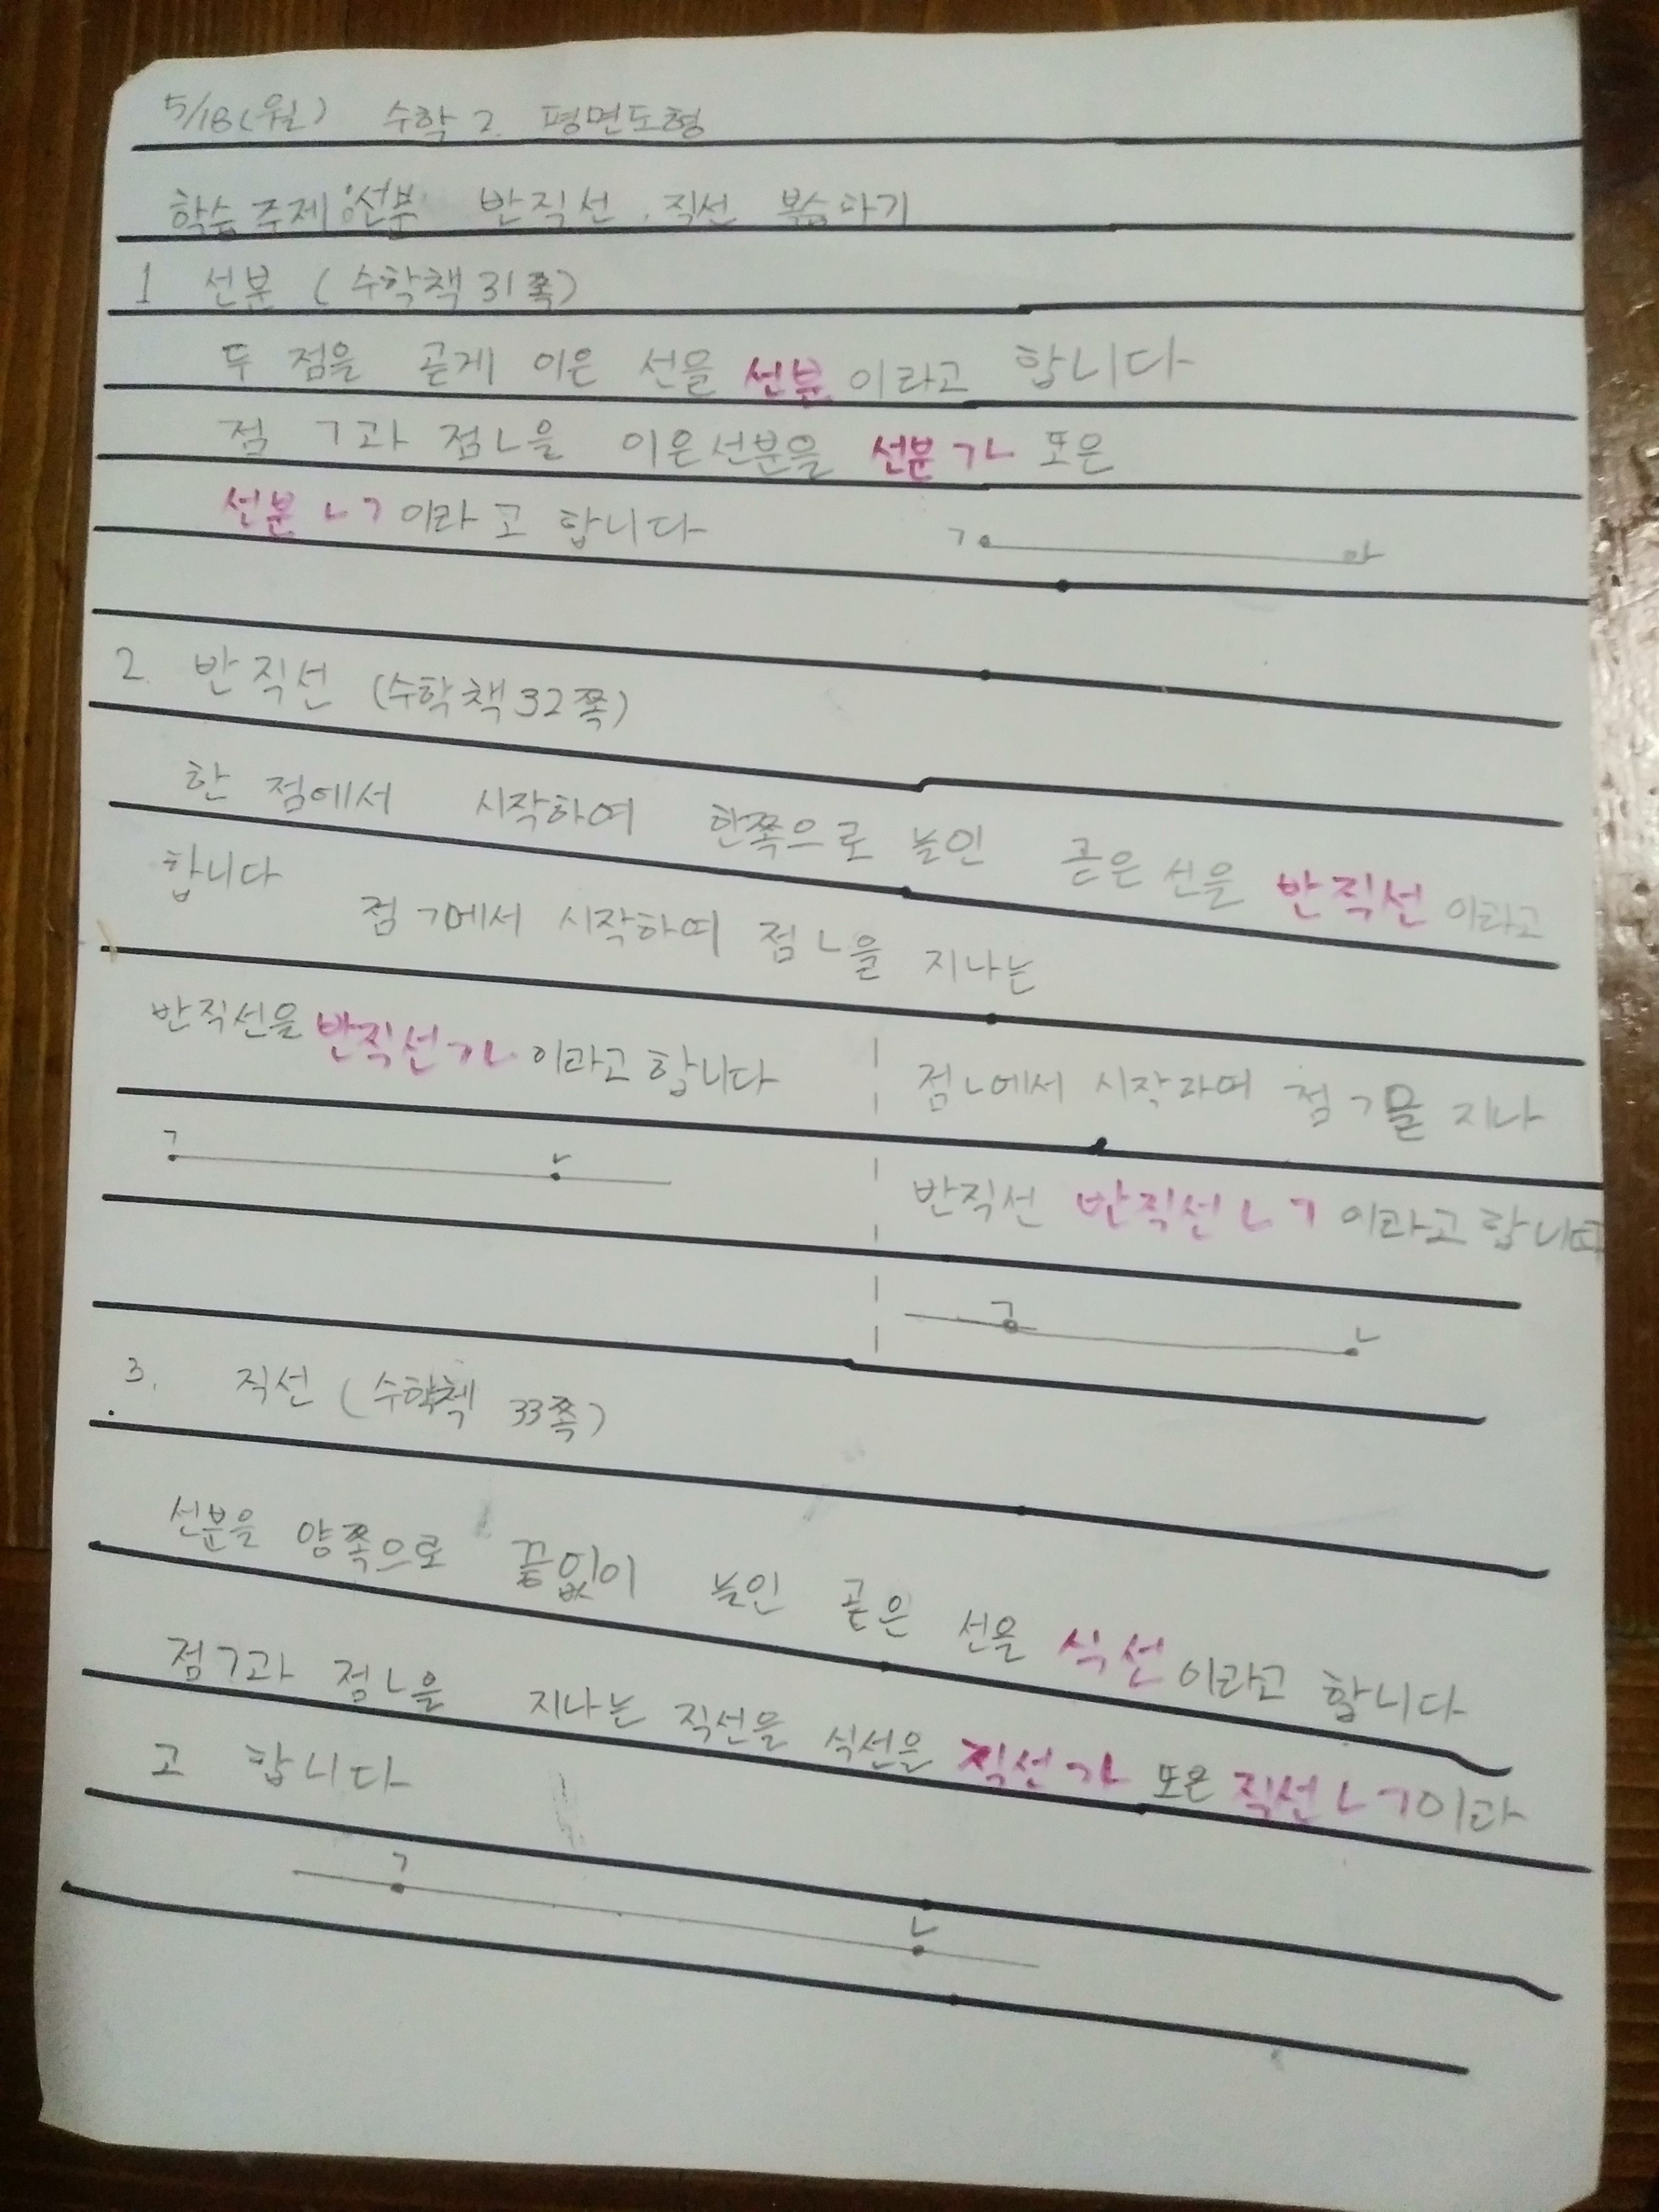 5/18(월) 수학 2. 평면도형
학습주제:선분 반직선. 직선 복습하기
1 선분 (수학책 31쪽)
두 점을 곧게 이은 선을 선분이라고 합니다
점 ㄱ과 점ㄴ을 이은선분을 선분ㄱㄴ 또은
선분ㄴㄱ이라고 합니다
ㄱ
2. 반직선 (수학책32쪽)
한 점에서 시작하여 한쪽으로 늘인 곧은 선을 반직선이라고
합니다 점ㄱ에서 시작하여 점ㄴ을 지나는
반직선을 반직선ㄱㄴ이라고 합니다
ㄱ ㄴ
점ㄴ에서 시작라여 점ㄱ을 지나
반직선 반직선ㄴㄱ 이라고 합니다
ㄱ ㄴ
3. 직선 (수학첵 33쪽)
선분을 양쪽으로 끝없이 늘인 곧은 선을 식선이라고 합니다
점ㄱ과 점ㄴ을 지나는 직선을 식선을 직선ㄱㄴ 또은 직선ㄴㄱ이라
고 합니다
ㄱ ㄴ